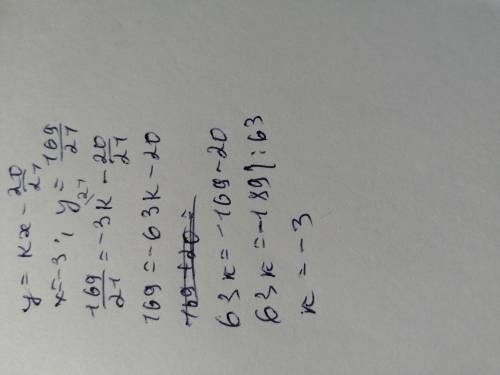 y = kx - 20/21
x = -3, y = 169/21
169/21 = -3k - 20/21
169 = -63k - 20
169 + 20 =
63k = -169 - 20
63k = -189 | : 63
k = -3